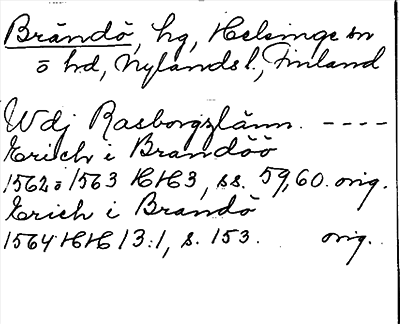 Brändö, hg, Helsinge sn
o hd, Nylands l., Finland
Wdj Rasborgzlänn. ----
Erich i Brandöö
1562 o 1563 HH3, ss. 59, 60. orig.
Erich i Brandö
1564 HH 13:1, s. 153. orig.